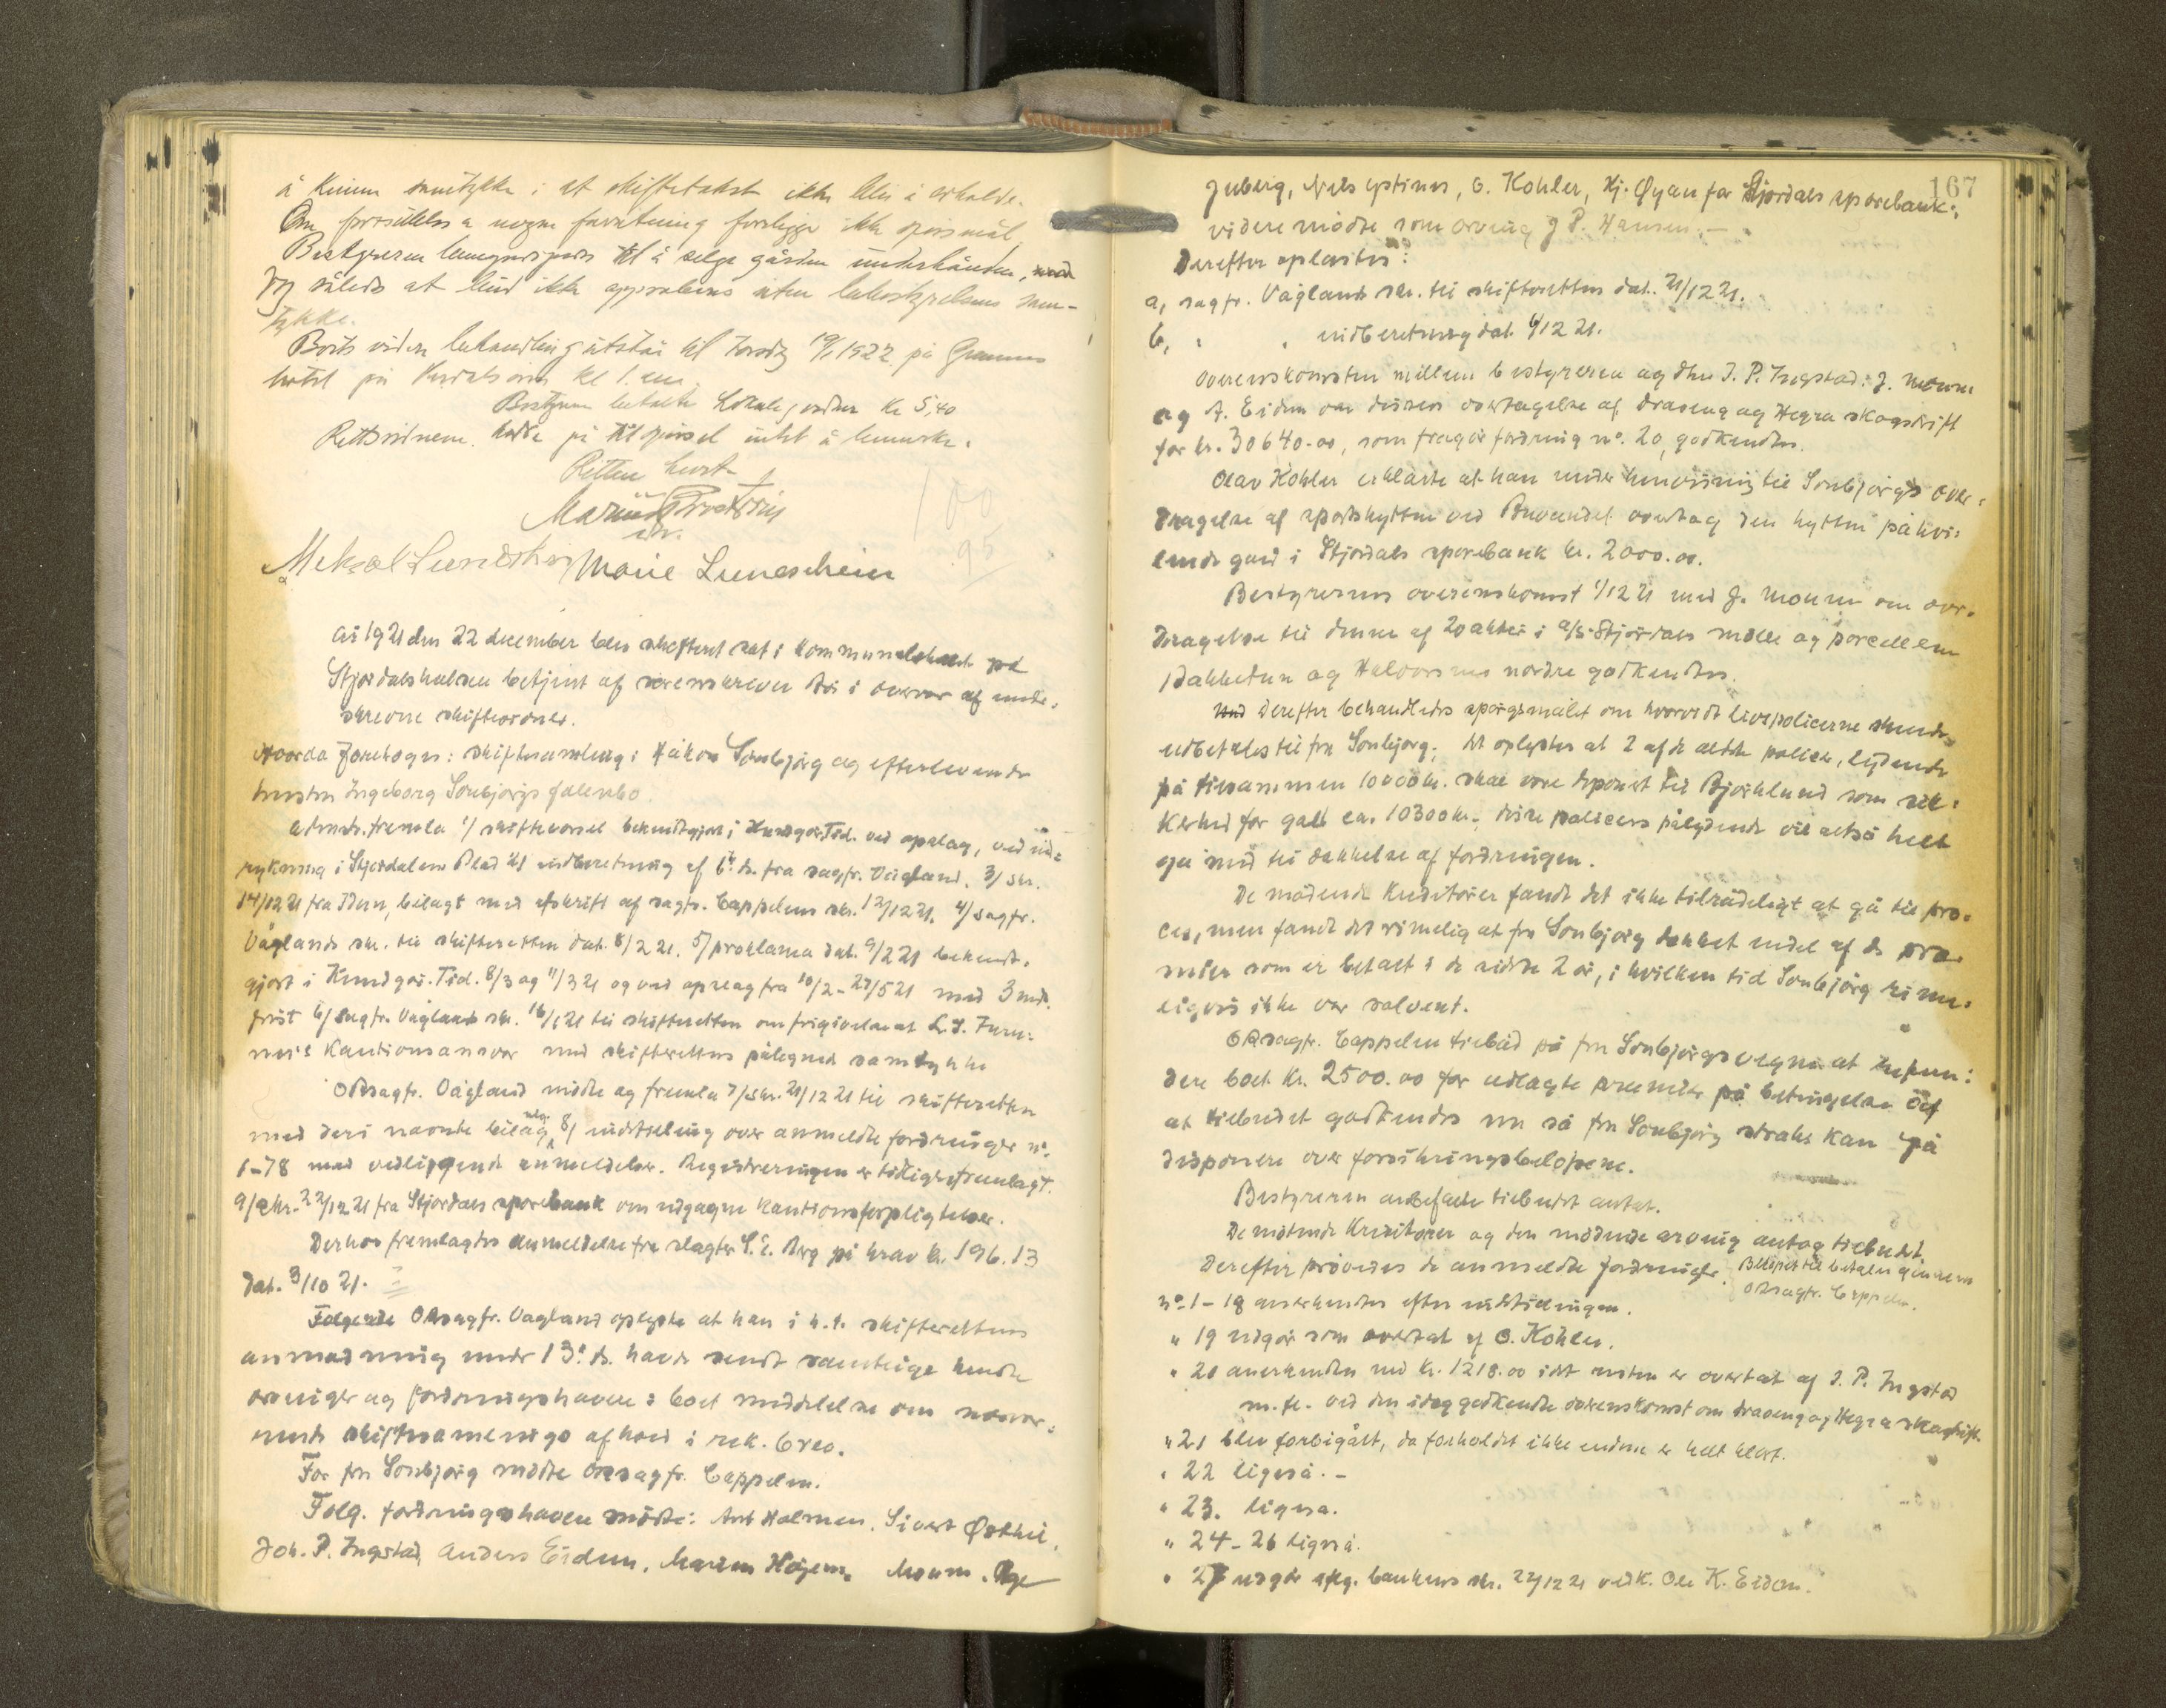 å kunne samtykke i at skiftetakst ikke blir å avholde.
Om forsættelse av nogen forretning foreligger ikke spørsmål.
Bestyreren bemyndiges til å selge gården underhånden,
dog således at bud ikke approberes uten bobestyrelsens sam-
tykke.
Boets videre behandling utstår til torsdag 19/1 1922 på
hotel på Verdalsøren kl 1. em.
Bestyreren betalte Lokale, kr 5,40
Rettsvidnene hadde på tilspørsel intet å bemerke.
Retten hevet
100
95
Marie Lunøschein
År 1921 den 22 december blev skifteret sat i kommunelokalet på
Stjørdalshalsen betjent af sorenskriver i overvær af under-
skrevne skiftevidner.
Hvorda foretoges: skiftesamling i Håkon Sonbjørg og efterlevende
hustru Ingeborg Sonbjørgs fallitbo.
Adm. fremla 1/ skiftevarsel bekendtgjort i Kundgør.Tid. ved opslag, ved ind-
rykning i Stjørdalens Blad 2/ indberetning af 6. ds. fra sagfr. Vågland. 3/ skr.
14/12 21 fra Idun, bilagt med afskrift af sagfr. Cappelens skr. 12/12 21. 4/ sagfr.
Våglands skr. til skifteretten dat. 8/2 21. 5/ proklama dat. 9/2 21 bekendt-
gjort i Kundgør.Tid. 8/3 og 11/3 21 og ved opslag fra 10/2 - 27/5 21 med 3 mdr.
frist 6/ sagfr. Våglands skr. 16/ 21 til skifteretten om frigivelse at L. S.
kautionsansvar med skifterettens påtegned samtykke
ORsagfr. Vågland mødte og fremla 7/ skr. 21/12 21 til skifteretten
med deri nævnte bilag, 8/ indstilling over anmeldte fordringer nr.
1-78 med vedliggende anmeldelser. Registreringen er tidligere fremlagt.
9/ skr. 22/12 21 fra Stjørdals sparebank om udgagne kautionsforpligtelser.
Derhos fremlagdes anmeldelse fra slagter S. E. Berg på krav kr. 196.13
dat. 3/10 21.
Følgende ORsagfr. Vågland oplyste at han i h.t. skifterettens
anmodning under 13. ds. havde sendt samtlige kendte
arvinger og fordringshavere i boet meddelelse om nærvær-
ende skiftesamlings afhold i rek. brev.
For fru Sonbjørg mødte ORsagfr. Cappelen.
Følg. fordringshavere mødte: Ant Holmen, Sivert Østkil,
Joh. P. Ingstad, Anders Eidem, Marius Høiem, Moum,
167
Juberg, Nils Opstinus, O. Kohler, Hj. Øyan for Stjørdals sparebank;
videre mødte som arving J P. Hansen. —
Derefter oplæstes:
a, sagfr. Våglands skr. til skifteretten dat. 21/12 21.
b, " " indberetning dat. 6/12 21.
Overenskomsten mellem bestyreren og dhrr J. P. Ingstad, J. Moum
og A. Eidem om disses overtagelse af Draveng og Hegra skogdrift
for kr. 30640.00, som fragår fordring no. 20, godkendtes.
Olav Kohler erklærte at han under henvisning til Sonbjørgs over-
dragelse af sportshytten ved overtog den hytten påhvi-
lende gæld i Stjørdals sparebank kr. 2000.00.
Bestyrerens overenskomst 1/12 21 med J. Moum om over-
dragelse til denne af 20 aktier i A/S Stjørdals mølle og parcellen
Bakketun og Halvorsmo nordre godkendtes.
Derefter behandledes spørgsmålet om hvorvidt livspolicerne skulde
udbetales til fru Sonbjørg; det oplystes at 2 af de ældste policer, lydende
på tilsammen 10000 kr. skal være deponert til Bjørklund som sik-
kerhed for gæld ca. 10300 kr.; disse policers pålydende vil altså helt
gå ind til dækkelse af fordringen.
De mødende kreditorer fandt det ikke tilrådeligt at gå til pro-
ces, men fandt det rimelig at fru Sonbjørg dækket endel af de præ-
mier som er betalt i de sidste 2 år, i hvilken tid Sonbjørg rime-
ligvis ikke var solvent.
ORsagfr. Cappelen tilbød på fru Sonbjørgs vegne at refun-
dere boet kr. 2500.00 for udlagte præmier på betingelse af
at tilbudet godkendes nu så fru Sonbjørg straks kan få
disponere over forsikringsbeløpene.
Bestyreren anbefalte tilbudet antat.
De møtende kreditorer og den mødende arving antog tilbudet.
Beløpet bli betalt gjennem
ORsagfr. Cappelen.
Derefter prøvedes de anmeldte fordringer.
No. 1 - 18 anerkendtes efter indstillingen.
" 19 udgår som overtat af O. Kohler.
" 20 anerkendtes med kr. 1218.00 idet resten er overtat af J. P. Ingstad
m.fl. ved den idag godkendte overenskomst om Draveng og Hegra skogdrift.
" 21 blev forbigått, da forholdet ikke endnu er helt klart.
" 22 ligeså. -
" 23. ligeså.
" 24 - 26 ligeså.
" 27 udgår iflg. bankens skr. 22/12 21 vedk. Ole K. Eidem.